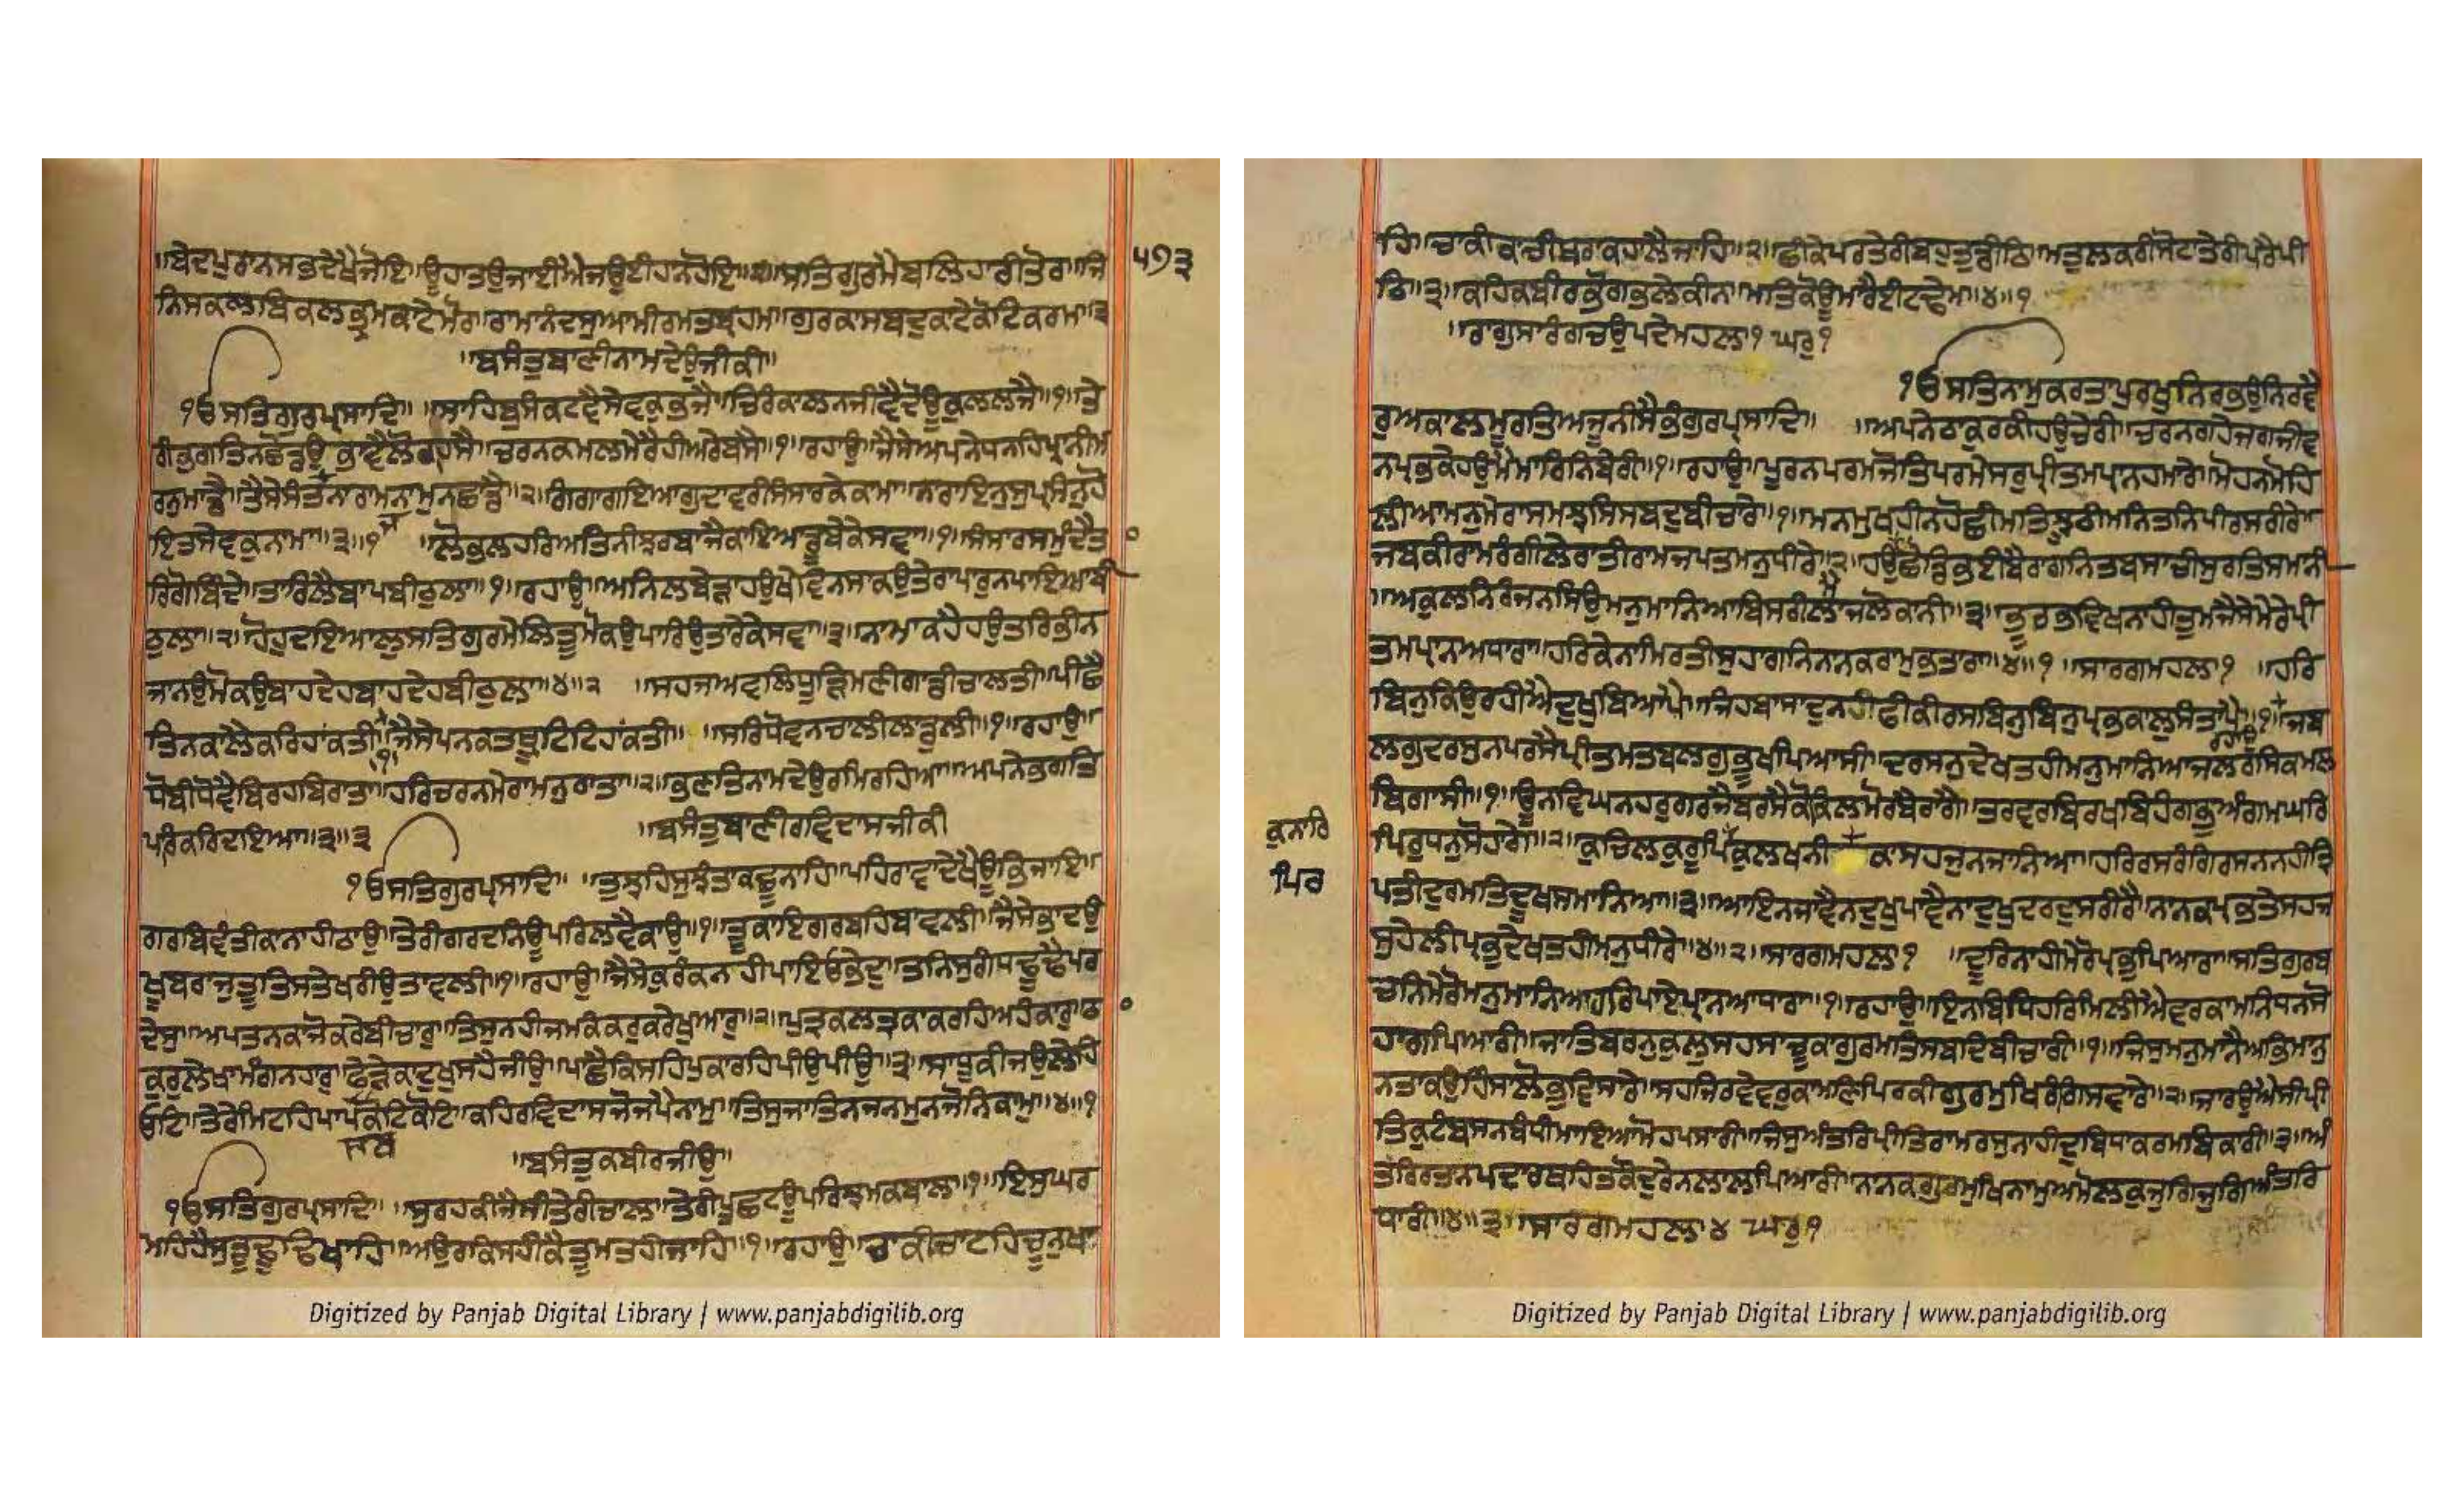 ॥ਬੇਦਪੁਰਾਨਸਭਦੇਖੇਜੋਇ॥ਊਹਾਤਉਜਾਈਐਜਉਈਹਾਨਹੋਇ॥੨॥ਸਤਿਗੁਰਮੈਬਲਿਹਾਰੀਤੋਰ॥ਜਿ ੫੭੩
ਨਿਸਕਲਬਿਕਲਭ੍ਰਮਕਾਟੇਮੋਰ॥ਰਾਮਾਨੰਦਸੁਆਮੀਰਮਤਬ੍ਰਹਮ॥ਗੁਰਕਾਸਬਦੁਕਾਟੇਕੋਟਿਕਰਮ॥੩
॥ਬਸੰਤੁਬਾਣੀਨਾਮਦੇਉਜੀਕੀ॥
੧ਓਸਤਿਗੁਰਪ੍ਰਸਾਦਿ॥ ॥ਸਾਹਿਬੁਸੰਕਟਵੈਸੇਵਕੁਭਜੈ॥ਚਿਰੰਕਾਲਨਜੀਵੈਦੋਊਕੁਲਲਜੈ॥੧॥ਤੇ
ਰੀਭਗਤਿਨਛੋਡਉਭਾਵੈਲੋਕੁਹਸੈ॥ਚਰਨਕਮਲਮੇਰੇਹੀਅਰੇਬਸੈ॥੧॥ਰਹਾਉ॥ਜੈਸੇਅਪਨੇਧਨਹਿਪ੍ਰਾਨੀਮ
ਰਨੁਮਾਂਡੈ॥ਤੈਸੇਸੰਤਨਾਰਾਮਨਾਮੁਨਛਾਂਡੈ॥੨॥ਗੰਗਾਗਇਆਗੁਦਾਵਰੀਸੰਸਾਰਕੇਕਾਮਾ॥ਨਾਰਾਇਨੁਸੁਪ੍ਰਸੰਨੁਹੋ
ਇਤਸੇਵਕੁਨਾਮਾ॥੩॥੧ ॥ਲੋਭਲਹਰਿਅਤਿਨੀਝਰਬਾਜੈਕਾਇਆਡੂਬੇਕੇਸਵਾ॥੧॥ਸੰਸਾਰਸਮੁੰਦੇਤਾ
ਰਿਗੋਬਿੰਦੇ॥ਤਾਰਿਲੈਬਾਪਬੀਠੁਲਾ॥੧॥ਰਹਾਉ॥ਅਨਿਲਬੇੜਾਹਉਖੇਵਿਨਸਾਕਉਤੇਰਾਪਾਰੁਨਪਾਇਆਬੀ
ਠੁਲਾ॥੨॥ਹੋਹੁਦਇਆਲੁਸਤਿਗੁਰਮੇਲਿਤੂਮੋਕਉਪਾਰਿਉਤਾਰੇਕੇਸਵਾ॥੩॥ਨਾਮਾਕਹੈਹਉਤਰਿਭੀਨ
ਜਾਨਉਮੋਕਉਬਾਹਦੇਹਬਾਹਦੇਹਬੀਠੁਲਾ॥੪॥੨ ॥ਸਹਜਅਵਲਿਧੂੜਿਮਣੀਗਾਡੀਚਾਲਤੀ॥ਪੀਛੈ
ਤਿਨਕਾਲੈਕਰਿਹਾਂਕਤੀ॥ਜੈਸੇਪਨਕਤਥ੍ਰੂਟਿਟਿਹਾਂਕਤੀ॥ ॥ਸਰਿਧੋਵਨਚਾਲੀਲਾਡੁਲੀ॥੧॥ਰਹਾਉ॥
ਧੋਬੀਧੋਵੈਬਿਰਹਬਿਰਾਤਾ॥ਹਰਿਚਰਨਮੇਰਾਮਨੁਰਾਤਾ॥੨॥ਭਣਤਿਨਾਮਦੇਉਰਮਿਰਹਿਆ॥ਅਪਨੇਭਗਤਿ
ਪਰਿਕਰਿਦਇਆ॥੩॥੩ ॥ਬਸੰਤੁਬਾਣੀਰਵਿਦਾਸਜੀਕੀ
੧ਓਸਤਿਗੁਰਪ੍ਰਸਾਦਿ॥ ॥ਤੁਝਹਿਸੁਝੰਤਾਕਛੂਨਾਹਿ॥ਪਹਿਰਾਵਾਦੇਖੈਊਭਿਜਾਇ॥
ਗਰਬਿਵਤੀਕਾਨਾਹੀਠਾਉ॥ਤੇਰੀਗਰਦਨਿਊਪਰਿਲਵੈਕਾਉ॥੧॥ਤੂਕਾਇਗਰਬਹਿਬਾਵਲੀ॥ਜੈਸੇਭਾਦਉ
ਖੂੰਬਰਾਜੁਤੂਤਿਸਤੇਖਰੀਉਤਾਵਲੀ॥੧॥ਰਹਾਉ॥ਜੈਸੇਕੁਰੰਕਨਹੀਪਾਇਓਭੇਦੁ॥ਤਨਿਸੁਗੰਧਢੂਢੈਪਰ
ਦੇਸੁ॥ਅਪਤਨਕਾਜੋਕਰੇਬੀਚਾਰੁ॥ਤਿਸੁਨਹੀਜਮਕੰਕਰੁਕਰੇਖੁਆਰੁ॥੨॥ਪੁਤ੍ਰਕਲਤ੍ਰਕਾਕਰਹਿਅਹੰਕਾਰੁ॥ਠਾ
ਕੁਰੁਲੇਖਾਮੰਗਨਹਾਰੁ॥ਫੇੜੇਕਾਦੁਖੁਸਹੈਜੀਉ॥ਪਾਛੈਕਿਸਹਿਪੁਕਾਰਹਿਪੀਉਪੀਉ॥੩॥ਸਾਧੂਕੀਜਉਲੇਹਿ
ਓਟ॥ਤੇਰੇਮਿਟਹਿਪਾਪਕੋਟਿਕੋਟਿ॥ਕਹਿਰਵਿਦਾਸਜੋਜਪੈਨਾਮੁ॥ਤਿਸੁਜਾਤਿਨਜਨਮੁਨਜੋਨਿਕਾਮੁ॥੪॥੧
ਸਭ ॥ਬਸੰਤੁਕਬੀਰਜੀਉ॥
੧ਓਸਤਿਗੁਰਪ੍ਰਸਾਦਿ॥ ॥ਸੁਰਹਕੀਜੈਸੀਤੇਰੀਚਾਲ॥ਤੇਰੀਪੂਛਟਊਪਰਿਝਮਕਬਾਲ॥੧॥ਇਸੁਘਰ
ਮਹਿਹੈਸੁਤੂਢੂਢਿਖਾਹਿ॥ਅਉਰਕਿਸਹੀਕੈਤੂਮਤਹੀਜਾਹਿ॥੧॥ਰਹਾਉ॥ਚਾਕੀਚਾਟਹਿਚੂਨੁਖਾ
Digitized by Panjab Digital Library | www.panjabdigilib.org
ਹਿ॥ਚਾਕੀਕਾਚੀਥਰਾਕਹਾਲੈਜਾਹਿ॥੨॥ਛੀਕੇਪਰਤੇਰੀਬਹੁਤੁਡੀਠਿ॥ਮਤੁਲਕਰੀਸੋਟਾਤੇਰੀਪਰੈਪੀ
ਠਿ॥੩॥ਕਹਿਕਬੀਰਭੋਗਭਲੇਕੀਨ॥ਮਤਿਕੋਊਮਾਰੈਈਂਟਢੇਮ॥੪॥੧
॥ਰਾਗੁਸਾਰੰਗਚਉਪਦੇਮਹਲਾ੧ ਘਰੁ੧
੧ਓਸਤਿਨਾਮੁਕਰਤਾਪੁਰਖੁਨਿਰਭਉਨਿਰਵੈ
ਰੁਅਕਾਲਮੂਰਤਿਅਜੂਨੀਸੈਭੰਗੁਰਪ੍ਰਸਾਦਿ॥ ॥ਅਪਨੇਠਾਕੁਰਕੀਹਉਚੇਰੀ॥ਚਰਨਗਹੇਜਗਜੀਵ
ਨਪ੍ਰਭਕੇਹਉਮੈਮਾਰਿਨਿਬੇਰੀ॥੧॥ਰਹਾਉ॥ਪੂਰਨਪਰਮਜੋਤਿਪਰਮੇਸਰਪ੍ਰੀਤਮਪ੍ਰਾਨਹਮਾਰੇ॥ਮੋਹਨਮੋਹਿ
ਲੀਆਮਨੁਮੇਰਾਸਮਝਸਿਸਬਦੁਬੀਚਾਰੇ॥੧॥ਮਨਮੁਖਹੀਨਹੋਛੀਮਤਿਝੂਠੀਮਨਿਤਨਿਪੀਰਸਰੀਰੇ॥
ਜਬਕੀਰਾਮਰੰਗੀਲੈਰਾਤੀਰਾਮਜਪਤਮਨੁਧੀਰੇ॥੨॥ਹਉਛੋਡਿਭਈਬੈਰਾਗਨਿਤਬਸਾਚੀਸੁਰਤਿਸਮਾਨੀ
॥ਅਕੁਲਨਿਰੰਜਨਸਿਉਮਨੁਮਾਨਿਆਬਿਸਰੀਲਾਜਲੋਕਾਨੀ॥੩॥ਭੂਰਭਵਿਖਨਾਹੀਤੁਮਜੈਸੇਮੇਰੇਪੀ
ਤਮਪ੍ਰਾਨਅਧਾਰਾ॥ਹਰਿਕੇਨਾਮਿਰਤੀਸੁਹਾਗਨਿਨਾਨਕਰਾਮਭਤਾਰਾ॥੪॥੧ ॥ਸਾਰਗਮਹਲਾ੧ ॥ਹਰਿ
ਬਿਨੁਕਿਉਰਹੀਐਦੁਖੁਬਿਆਪੈ॥ਜਿਹਬਾਸਾਦੁਨਹੀਫੀਕੀਰਸਬਿਨੁਬਿਨੁਪ੍ਰਭਕਾਲੁਸੰਤਾਪੈ॥੧॥ਜਬ
ਰਹਾਉ
ਲਗੁਦਰਸੁਨਪਰਸੈਪ੍ਰੀਤਮਤਬਲਗੁਭੂਖਪਿਆਸੀ॥ਦਰਸਨੁਦੇਖਤਹੀਮਨੁਮਾਨਿਆਜਲਰਸਿਕਮਲ
ਬਿਗਾਸੀ॥੧॥ਊਨਵਿਘਨਹਰੁਗਰਜੈਬਰਸੈਕੋਕਿਲਮੋਰਬੈਰਾਗੈ॥ਤਰਵਰਬਿਰਖਬਿਹੰਗਭੁਅੰਗਮਘਰਿ
ਕੁਨਾਰਿ
ਪਿਰੁਧਨਸੋਹਾਗੈ॥੨॥ਕੁਚਿਲਕੁਰੂਪਿਕੁਲਖਨੀ ਕਾਸਹਜੁਨਜਾਨਿਆ॥ਹਰਿਰਸਰੰਗਿਰਸਨਨਹੀਤ੍ਰਿ
ਪਿਰ
ਪਤੀਦੁਰਮਤਿਦੂਖਸਮਾਨਿਆ॥੩॥ਆਇਨਜਾਵੈਨਦੁਖੁਪਾਵੈਨਾਦੁਖੁਦਰਦੁਸਰੀਰੇ॥ਨਾਨਕਪ੍ਰਭਤੇਸਹਜ
ਸੁਹੇਲੀਪ੍ਰਭਦੇਖਤਹੀਮਨੁਧੀਰੇ॥੪॥੨॥ਸਾਰਗਮਹਲਾ੧ ॥ਦੂਰਿਨਾਹੀਮੇਰੋਪ੍ਰਭੁਪਿਆਰਾ॥ਸਤਿਗੁਰਬ
ਚਨਿਮੇਰੋਮਨੁਮਾਨਿਆਹਰਿਪਾਏਪ੍ਰਾਨਅਧਾਰਾ॥੧॥ਰਹਾਉ॥ਇਨਬਿਧਿਹਰਿਮਿਲੀਐਵਰਕਾਮਨਿਧਨਸੋ
ਹਾਗਪਿਆਰੀ॥ਜਾਤਿਬਰਨਕੁਲਸਹਸਾਚੂਕਾਗੁਰਮਤਿਸਬਦਿਬੀਚਾਰੀ॥੧॥ਜਿਸੁਮਨੁਮਾਨੈਅਭਿਮਾਨੁ
ਨਤਾਕਉਹਿੰਸਾਲੋਭੁਵਿਸਾਰੇ॥ਸਹਜਿਰਵੈਵਰੁਕਾਮਣਿਪਿਰਕੀਗੁਰਮੁਖਿਰੰਗਿਸਵਾਰੇ॥੨॥ਜਾਰਉਐਸੀਪ੍ਰੀ
ਤਿਕੁਟੰਬਸਨਬੰਧੀਮਾਇਆਮੋਹਪਸਾਰੀ॥ਜਿਸੁਅੰਤਰਿਪ੍ਰੀਤਿਰਾਮਰਸੁਨਾਹੀਦੁਬਿਧਾਕਰਮਬਿਕਾਰੀ॥੩॥ਅੰ
ਤਰਿਰਤਨਪਦਾਰਥਹਿਤਕੌਦੁਰੈਨਲਾਲਪਿਆਰੀ॥ਨਾਨਕਗੁਰਮੁਖਿਨਾਮੁਅਮੋਲਕੁਜੁਗਿਜੁਗਿਅੰਤਰਿ
ਧਾਰੀ॥੪॥੩॥ਸਾਰਗਮਹਲਾ੪ ਘਰੁ੧
Digitized by Panjab Digital Library | www.panjabdigilib.org